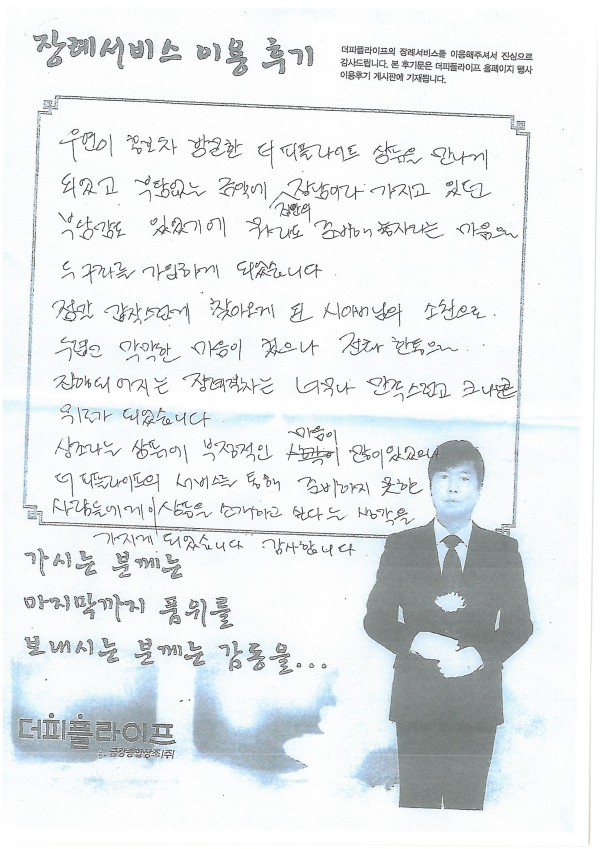 장례서비스 이용 후기
더피플라이프의 장례서비스를 이용해주셔서 진심으로
감사드립니다. 본 후기문은 더피플라이프 홈페이지 행사
이용후기 게시판에 기재됩니다.
우연히 방문한 더 피플라이프 상품을 만나게
되었고 부담없는 금액에 장남이라 가지고 있던
집안의
부담감도 있었기에 준비해 놓자라는 마음으로
두구좌를 가입하게 되었습니다.
정말 갑작스럽게 찾아오게 된 시아버님의 소천으로.
누렵고 막막한 마음이 컸으나 전화 한통으로.
진행되어지는 장례절차는 너무나 만족스럽고 크나큰
위로가 되었습니다
마음이
상조라는 상품에 부정적인 생각이 많이 있었으나
더 피플라이프의 서비스를 통해 준비하지 못한
사람들에게 이 상품을 소개하고 싶다는 생각을
가지게 되었습니다 감사합니다
가시는 분께는
마지막까지 품위를
보내시는 분께는 감동을...
더피플라이프
구. 금강종합상조(주)